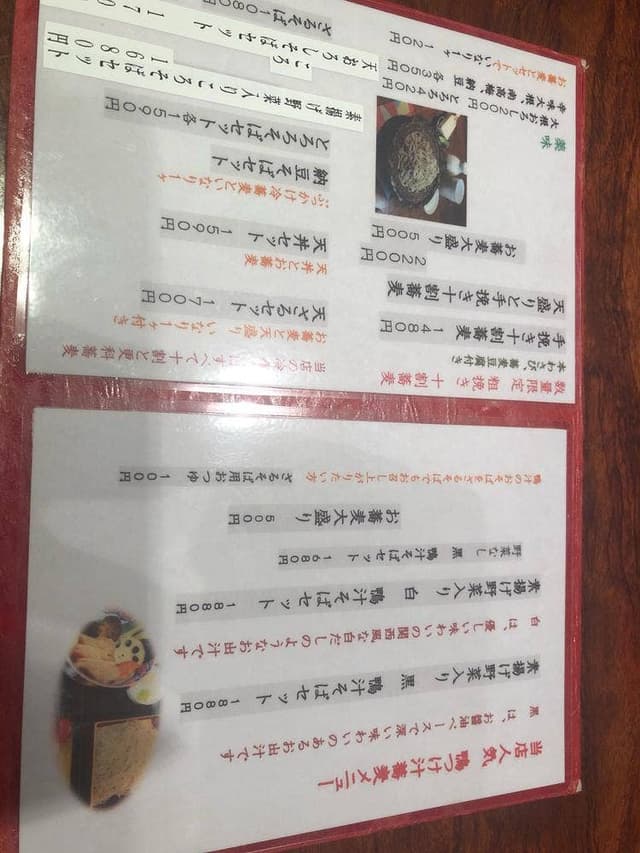 当店人気 鴨つけ汁蕎麦メニュー
黒は、お醤油ベースで深い味わいのあるお出汁です
素揚げ野菜入り 黒 鴨汁そばセット
1880円
白は、優しい味わいの関西風な白だしのようなお出汁です
素揚げ野菜入り 白 鴨汁そばセット
1880円
野菜なし 黒 鴨汁そばセット
1680円
お蕎麦大盛り
500円
鴨汁のお蕎麦をざるそばでもお召し上がりたい方
ざるそば用おつゆ
100円
数量限定 粗挽き 十割蕎麦
本わさび、蕎麦豆腐付き
手挽き十割蕎麦
1480円
天盛りと手挽き十割蕎麦
2200円
お蕎麦大盛り
500円
薬味
大根おろし200円 とろろ420円
辛味大根、南高梅、納豆 各350円
お蕎麦とセットで、いなり1ヶ
120円
お蕎麦と天盛り いなり1ヶ付き
天ざるセット
1700円
天丼とお蕎麦
天丼セット
1590円
ぶっかけ冷蕎麦といなり1ヶ
納豆そばセット
とろろそばセット各1590円
素揚げ野菜入りころそばセット
1680円
天おろしそばセット
ころ
ざるそば
1080円